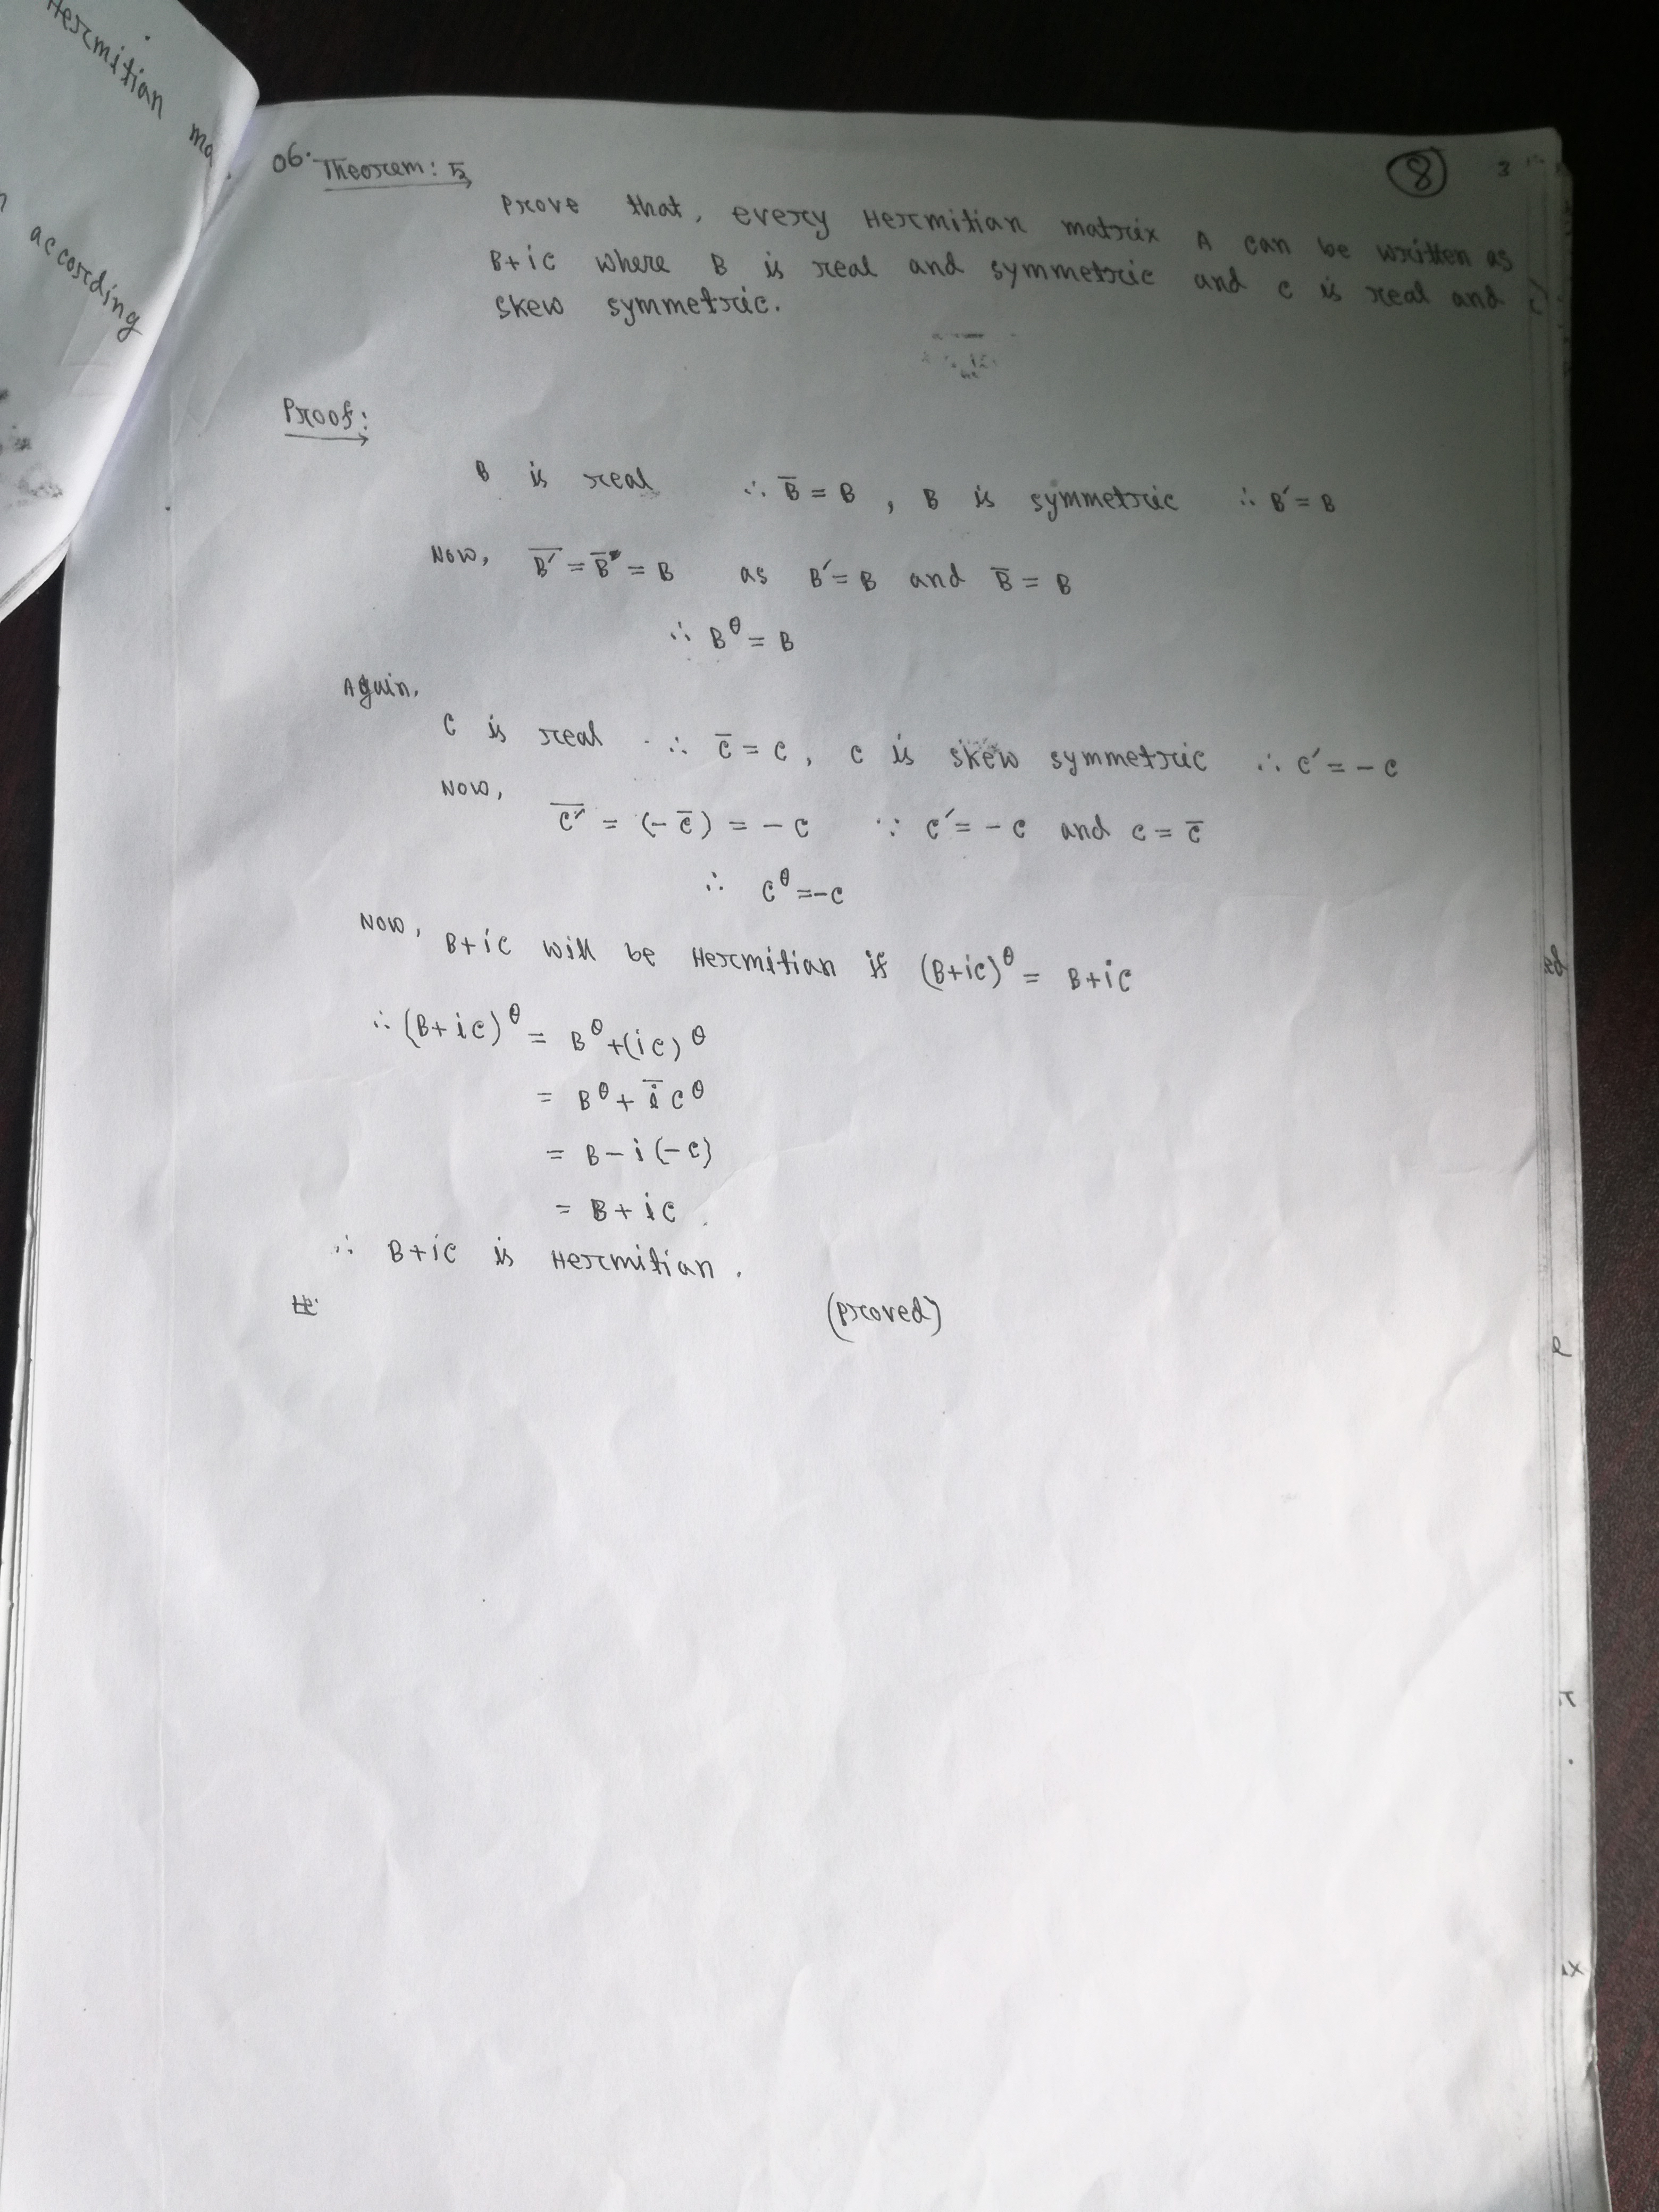 Hermitian
according
06. Theorem: 5
8
3
Prove that, every Hermitian matrix A can be written as
B+iC where B is real and symmetric and C is real and
skew symmetric.
Proof:
B is real ∴ B̅ = B , B is symmetric ∴ B′ = B
Now, \overline{B′} = B̅ = B as B′ = B and B̅ = B
∴ B^θ = B
Again,
C is real ∴ C̅ = C, C is skew symmetric ∴ C′ = - C
Now,
\overline{C′} = (- C̅) = - C ∵ C′ = - C and C = C̅
∴ C^θ = -C
Now, B+iC will be Hermitian if (B+iC)^θ = B+iC
∴ (B+iC)^θ = B^θ +(iC)^θ
= B^θ + i̅ C^θ
= B - i (-C)
= B + iC
∴ B+iC is Hermitian.
(proved)
ed
e
r
ix